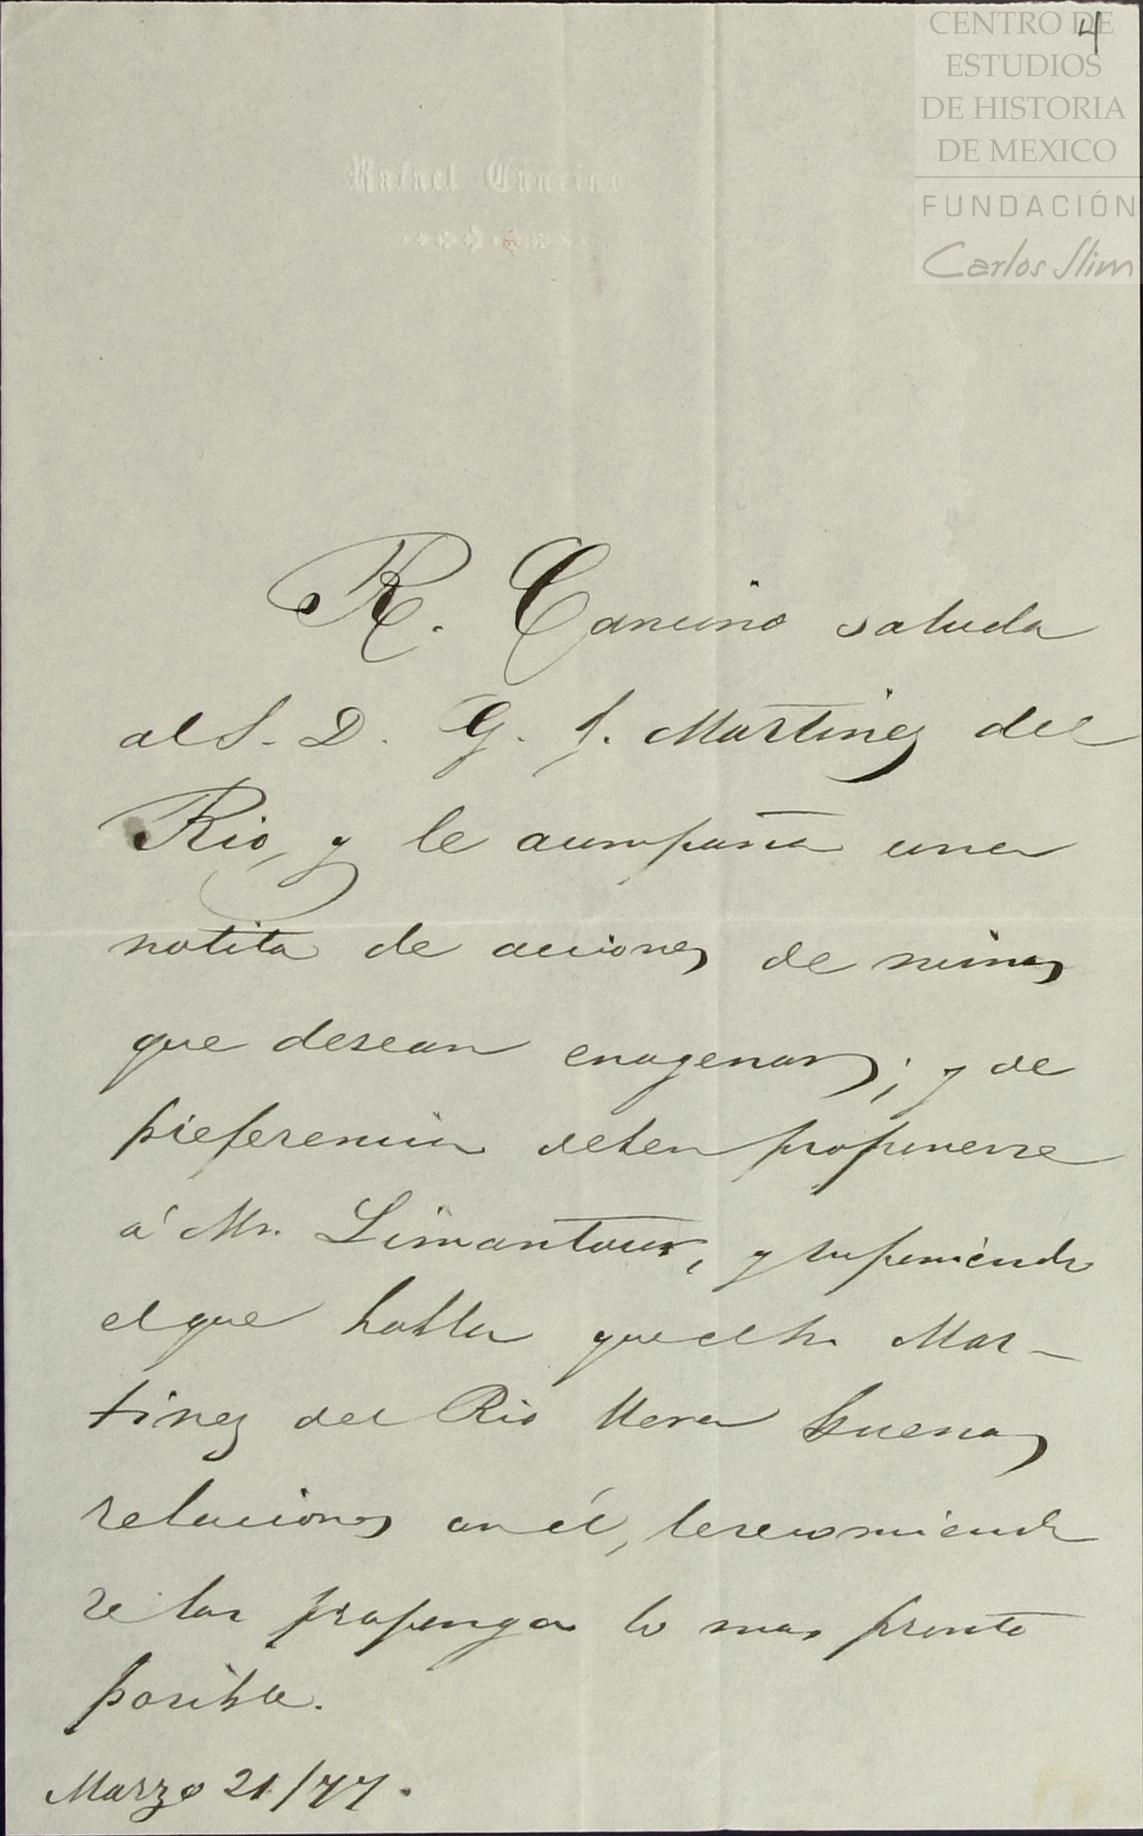 4
CENTRO DE
ESTUDIOS
DE HISTORIA
DE MEXICO
FUNDACIÓN
Carlos Slim
Rafael Cancino
R. Cancino saluda
al S. D. G. J. Martinez del
Rio, y le acompaña una
notita de acciones de minas
que desean enagenar; y de
preferencia deben proponerse
á Mr. Limantour, y suponiendo
el que habla que el Sr. Mar-
tinez del Rio lleva buenas
relaciones con él, le recomienda
se las proponga lo mas pronto
posible.
Marzo 21/77.